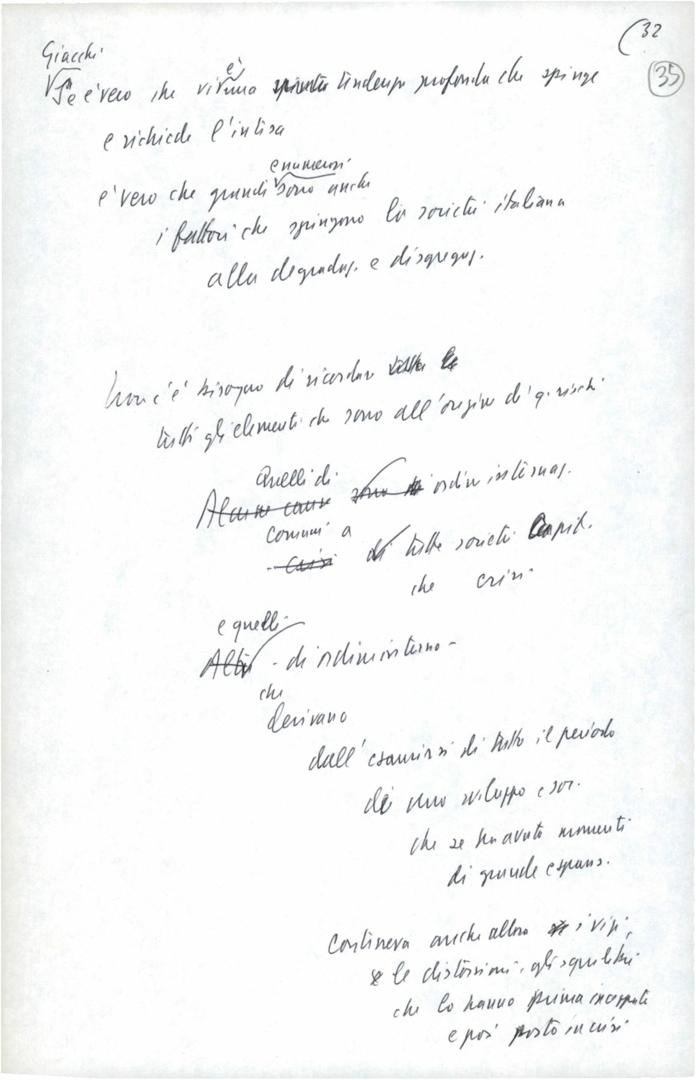 (32
35
Giacchi
Se è vero che vi è una tendenza profonda che spinge
e richiede l'intesa
è vero che grandi e numerosi sono anche
i fattori che spingono la società italiana
alla degradaz. e disgregaz.
Non c'è bisogno di ricordare tutte le
tutti gli elementi che sono all'origine di q. rischi
Quelli di
Alcune cause sono di ordine internaz.
comuni a
- Crisi di tutte società Capit.
che crisi
e quelli
Altri - di ordine interno -
che
derivano
dall'esaurirsi di tutto il periodo
di uno sviluppo e soc.
che se ha avuto momenti
di grande espans.
Conteneva anche allora i vizi,
le distorsioni, gli squilibri
che lo hanno prima inceppato
e poi posto in crisi